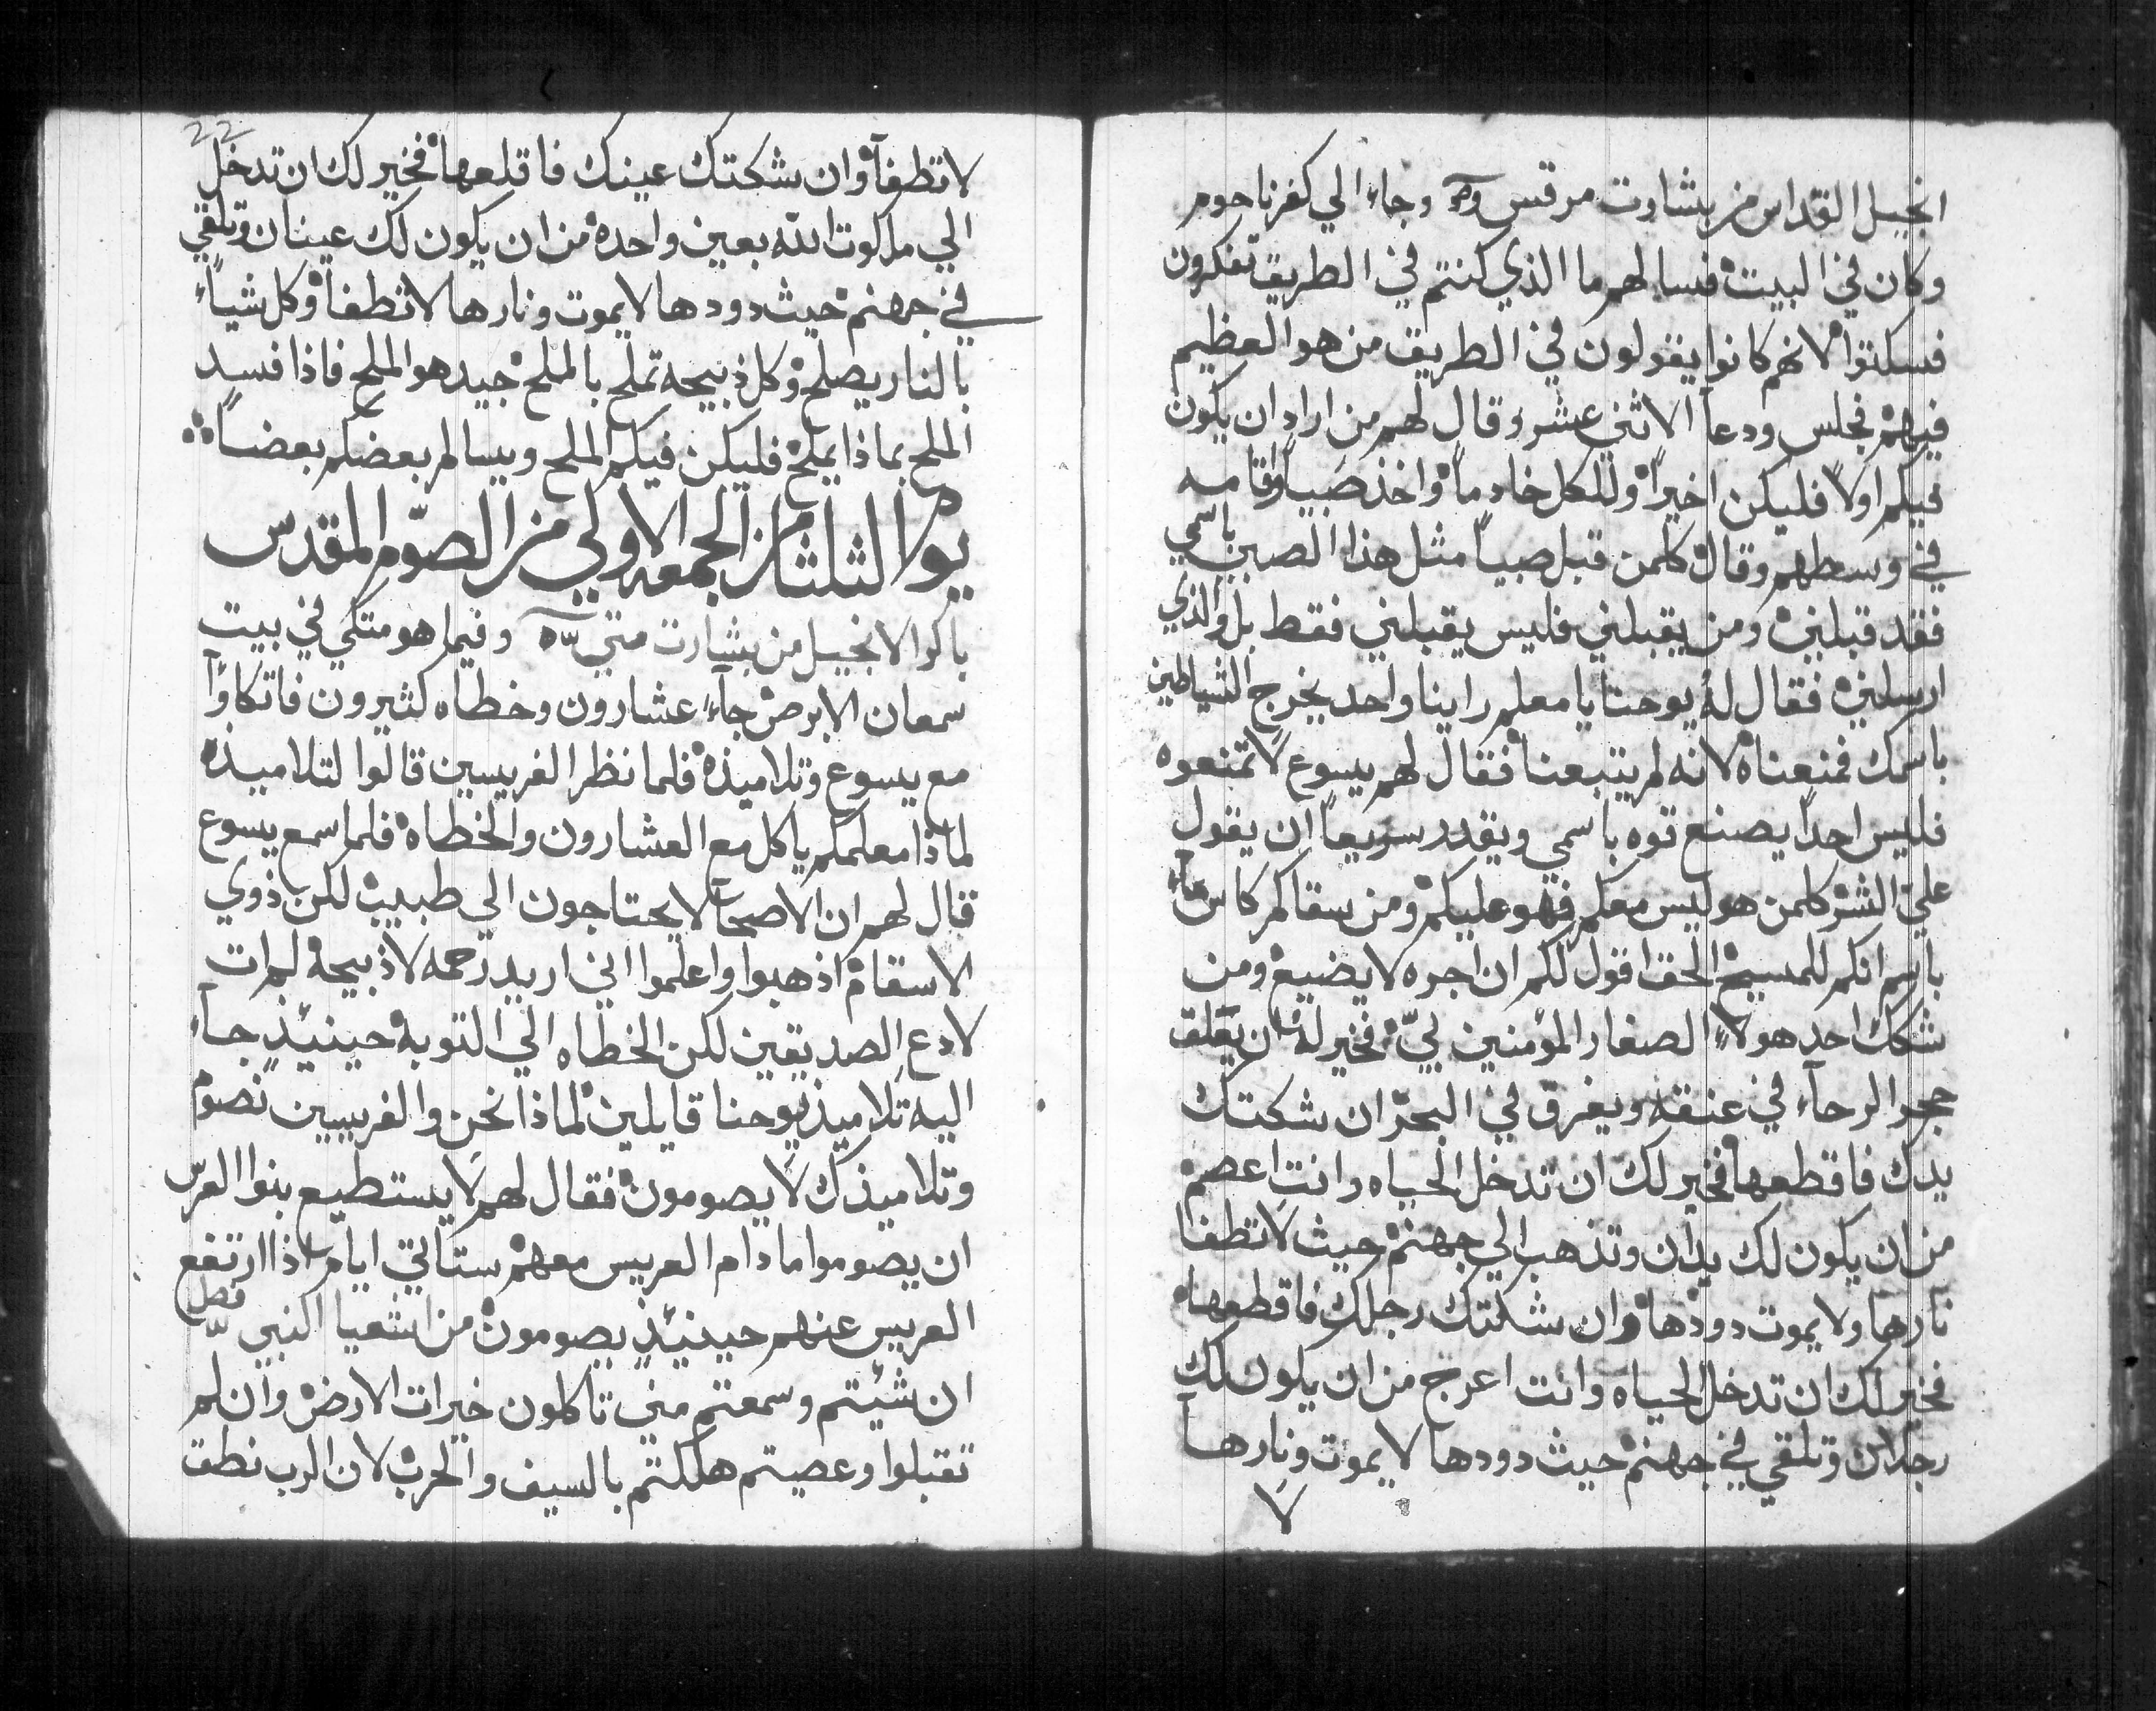 انجيل القداس من بشارت مرقس وجاء الي كفرناحوم
وكان في البيت فسالهم ما الذي كنتم في الطريق تفكرون
فسكتوا لانهم كانوا يقولون في الطريق من هو العظيم
فيهم فجلس ودعا الاثني عشر وقال لهم من اراد ان يكون
فيكم اولاً فليكن اخيراً وللكل خادماً واخذ صبياً واقامه
في وسطهم وقال كلمن قبل صبياً مثل هذا الصبي باسمي
فقد قبلني ومن يقبلني فليس يقبلني فقط بل والذي
ارسلني فقال له يوحنا يا معلم راينا واحد يخرج الشياطين
باسمك فمنعناه لانه لم يتبعنا فقال لهم يسوع لا تمنعوه
فليس احداً يصنع قوه باسمي ويقدر سريعاً ان يقول
علي الشر كلمن هو ليس معكم فهو عليكم ومن سقاكم كاس ماء
باسم انكم للمسيح الحق اقول لكم ان اجره لا يضيع ومن
شكك احد هولاء الصغار المؤمنين بيّ فخير له ان يعلق
حجر الرحاء في عنقه ويغرق في البحر ان شكتك
يدك فاقطعها فخير لك ان تدخل الحياه وانت اعصم
من ان يكون لك يدان وتذهب الي جهنم حيث لا تطفا
نارها ولا يموت دودها وان شكتك رجلك فاقطعها
فخير لك ان تدخل الحياه وانت اعرج من ان يكون لك
رجلان وتلقي في جهنم حيث دودها لا يموت ونارها
لا
22
لا تطفآ وان شكتك عينك فاقلعها فخير لك ان تدخل
الي ملكوت الله بعين واحده من ان يكون لك عينان وتلقي
في جهنم حيث دودها لا يموت ونارها لا تطفا وكل شياً
بالنار يصلح وكل ذبيحه تملح بالملح جيد هو الملح فاذا فسد
الملح بماذا يملح فليكن فيكم الملح ويسالم بعضكم بعضاً
يوم الثلثا من الجمعه الاولي من الصوم المقدس
باكر الانجيل من بشارت متي وفيما هو متكي في بيت
سمعان الابرص جاء عشارون وخطاه كثيرون فاتكاوا
مع يسوع وتلاميذه فلما نظر الفريسين قالوا لتلاميذه
لماذا معلمكم ياكل مع العشارون والخطاه فلما سمع يسوع
قال لهم ان الاصحاء لا يحتاجون الي طبيب لكن ذوي
الاسقام اذهبوا واعلموا اني اريد رحمه لا ذبيحه لم ات
لادع الصديقين لكن الخطاه الي التوبه حينيذٍ جاء
اليه تلاميذ يوحنا قايلين لماذا نحن والفريسين نصوم
وتلاميذك لا يصومون فقال لهم لا يستطيع بنوا العرس
ان يصوموا ما دام العريس معهم ستاتي ايام اذا ارتفع
العريس عنهم حينيذٍ يصومون من اشعيا النبي فصل
ان شيتم وسمعتم مني تاكلون خيرات الارض وان لم
تقبلوا وعصيتم هلكتم بالسيف والحرب لان الرب نطق